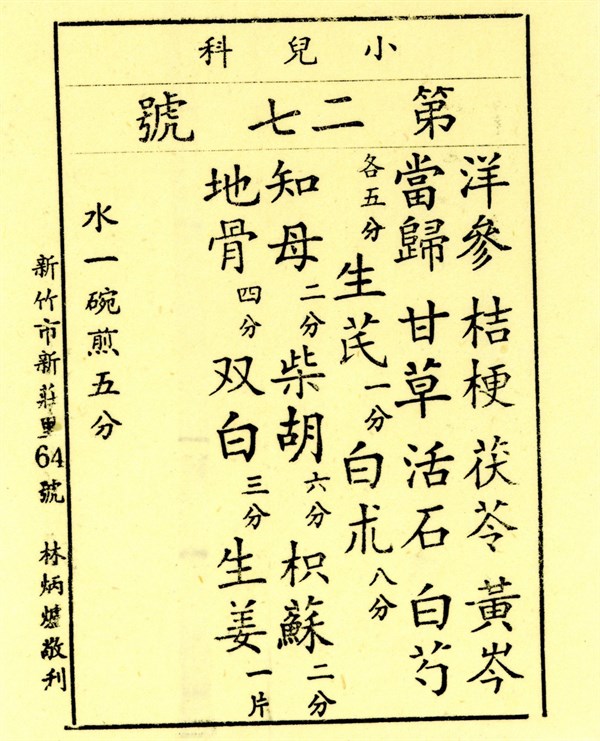 小兒科
第二七號
洋參 桔梗 茯苓 黃岑
當歸 甘草 活石 白芍
各五分 生芪一分 白朮八分
知母二分 柴胡六分 枳蘇二分
地骨四分 双白三分 生姜一片
水一碗煎五分
新竹市新莊里64號 林炳爐敬刊